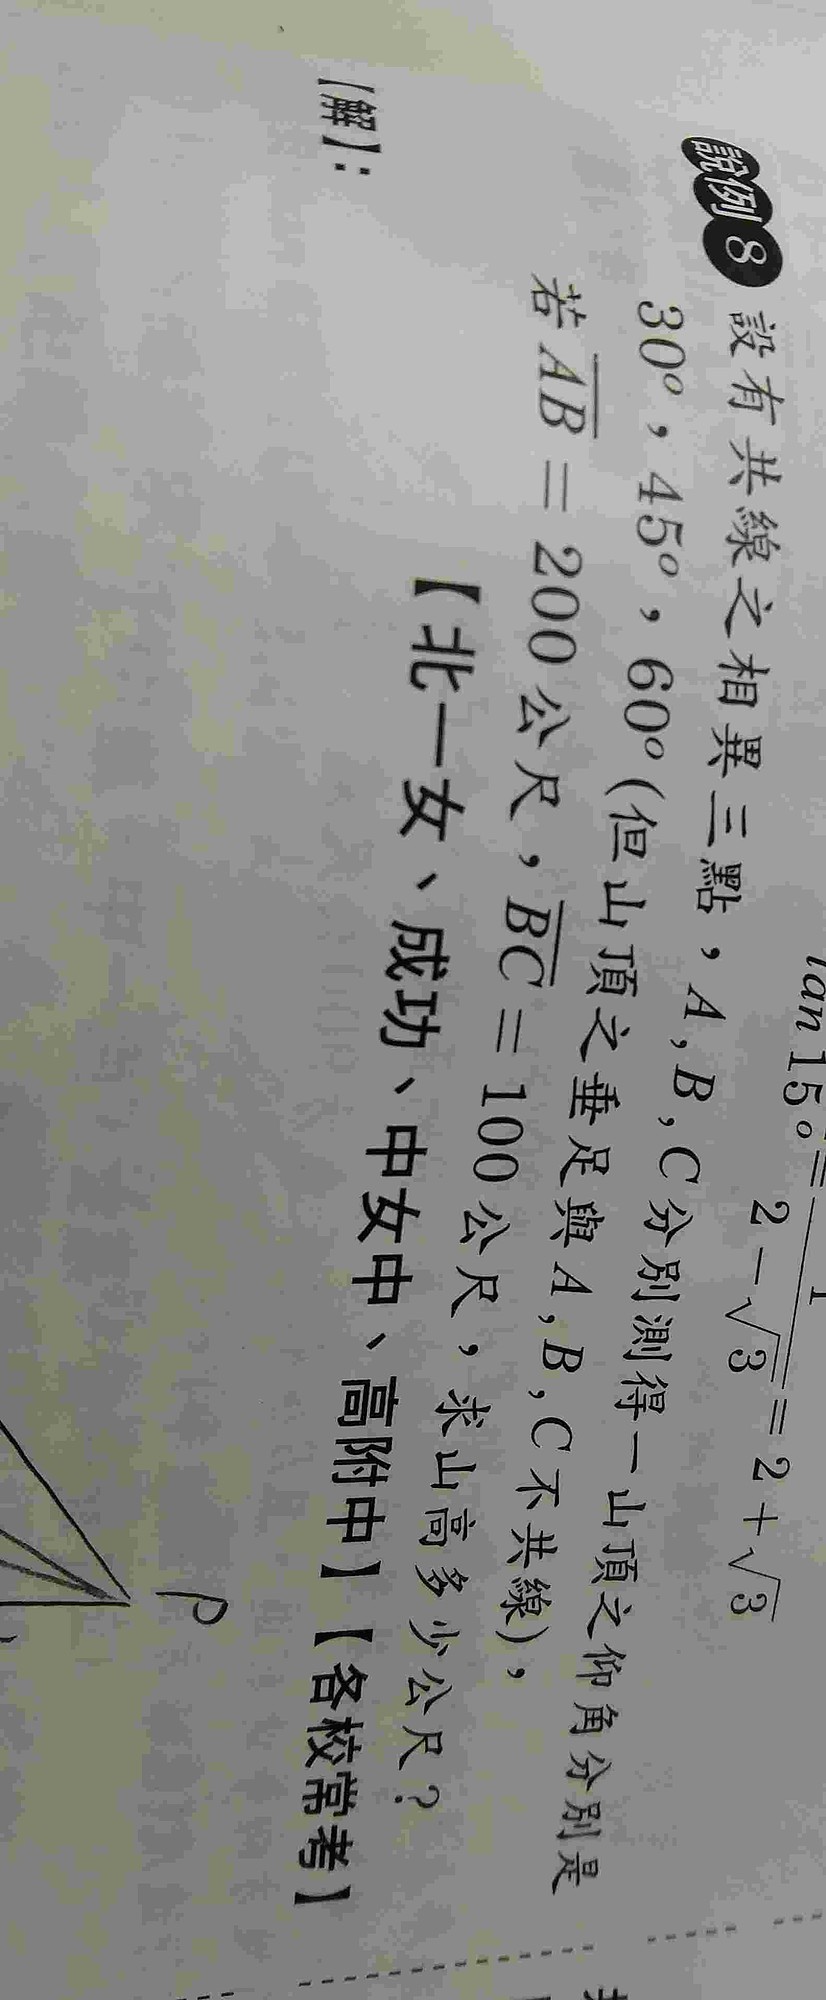 tan 15° = 1 / (2 - √3) = 2 + √3
說例 8 設有共線之相異三點，A, B, C 分別測得一山頂之仰角分別是
30°，45°，60° (但山頂之垂足與 A, B, C 不共線)，
若 AB = 200 公尺，BC = 100 公尺，求山高多少公尺？
【北一女、成功、中女中、高附中】【各校常考】
【解】：
P